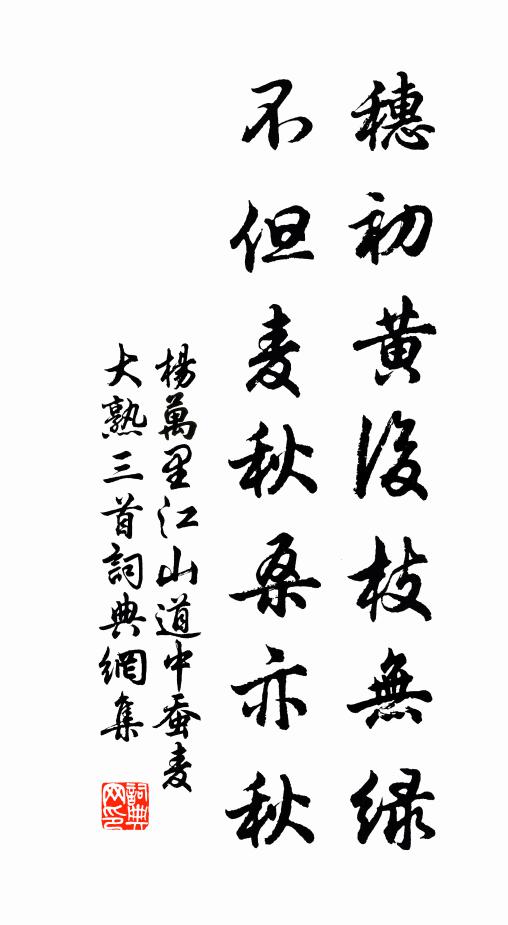 穗初黃後枝無綠
不但麦秋桑亦秋
楊萬里江山道中蚕麦
大熟三首詞典網集
詞典网印